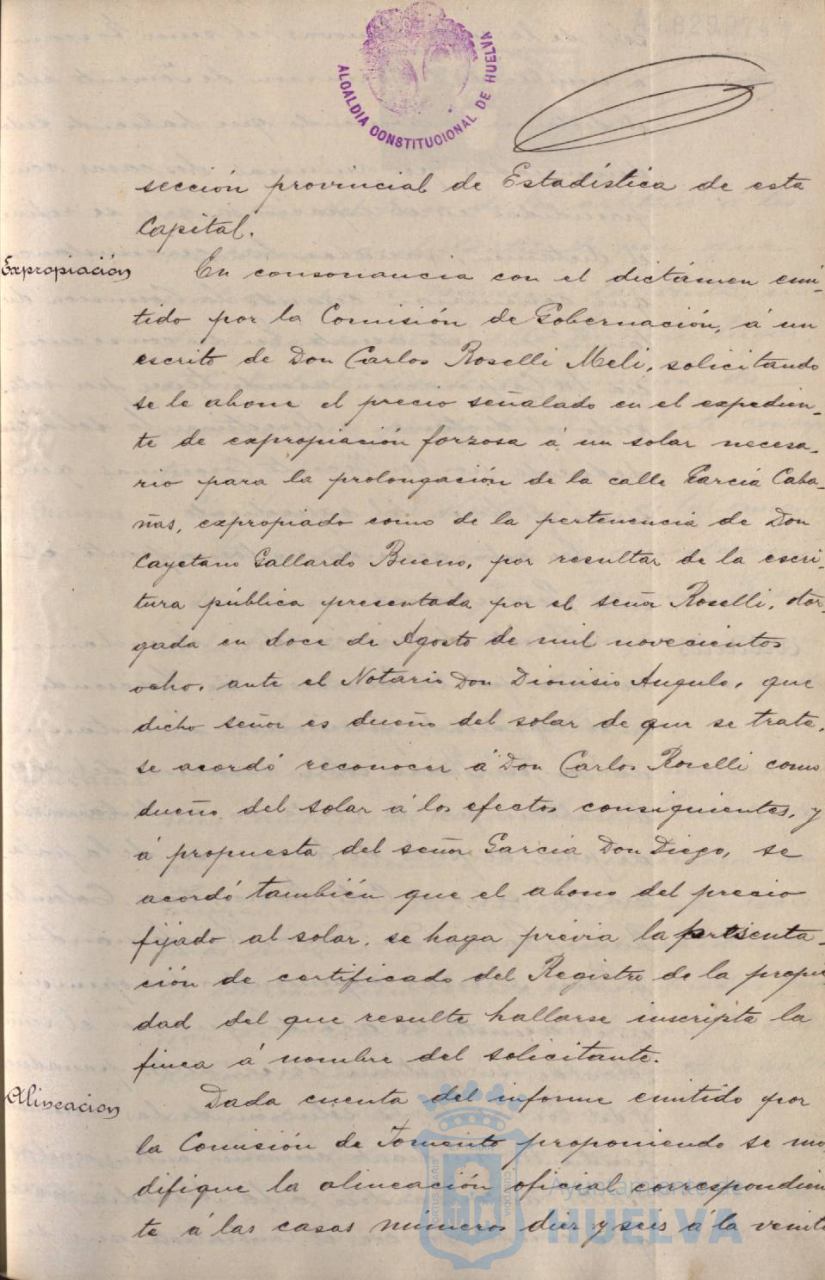 ALCALDÍA CONSTITUCIONAL DE HUELVA
sección provincial de Estadística de esta
Capital.
Expropiación
En consonancia con el dictámen emi-
tido por la Comisión de Gobernación, á un
escrito de Don Carlos Roselli Meli, solicitando
se le abone el precio señalado en el expedien-
te de expropiación forzosa á un solar necesa-
rio para la prolongación de la calle García Caba-
ñas, expropiado como de la pertenencia de Don
Cayetano Gallardo Bueno, por resultar de la escri-
tura pública presentada por el señor Roselli, otor-
gada en doce de Agosto de mil novecientos
ocho, ante el Notario Don Dionisio Angulo, que
dicho señor es dueño del solar de que se trata,
se acordó reconocer á Don Carlos Roselli como
dueño del solar á los efectos consiguientes, y
á propuesta del señor García Don Diego, se
acordó también que el abono del precio
fijado al solar, se haga previa la presenta-
ción de certificado del Registro de la propie
dad del que resulte hallarse inscripta la
finca á nombre del solicitante.
Alineacion
Dada cuenta del informe emitido por
la Comisión de Fomento proponiendo se mo
difique la alineación oficial correspondien
te á las casas números diez y seis á la veinti
Ayuntamiento de
HUELVA